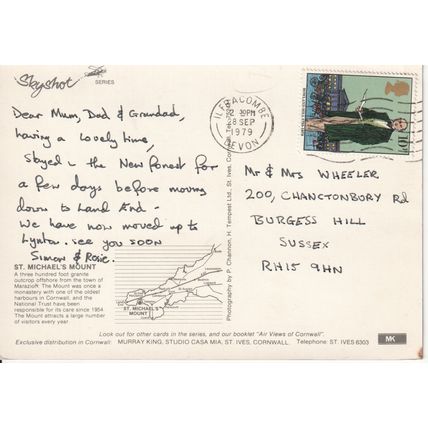 Skyshot
SERIES
Dear Mum, Dad & Grandad,
having a lovely time,
Stayed in the New Forest for
a few days before moving
down to Land End -
We have now moved up to
Lynton. see you soon
Simon & Rosie.
ST. MICHAEL'S MOUNT
A three hundred foot granite
outcrop offshore from the town of
Marazion. The Mount was once a
monastery with one of the oldest
harbours in Cornwall, and the
National Trust have been
responsible for its care since 1954.
The Mount attracts a large number
of visitors every year
ST. MICHAEL'S
MOUNT
Photography by P. Channon, H. Tempest Ltd., St. Ives, Cornwall.
ILFRACOMBE
2 30PM
28 SEP
1979
DEVON
10P
Mr & Mrs WHEELER
200, CHANCTONBURY Rd
BURGESS HILL
SUSSEX
RH15 9HN
Look out for other cards in the series, and our booklet "Air Views of Cornwall".
Exclusive distribution in Cornwall: MURRAY KING, STUDIO CASA MIA, ST. IVES, CORNWALL. Telephone: ST. IVES 6303
MK